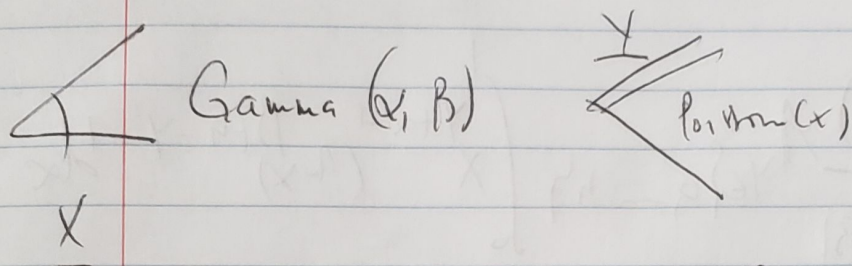 Y
Gamma (α, β)
Poisson (x)
X